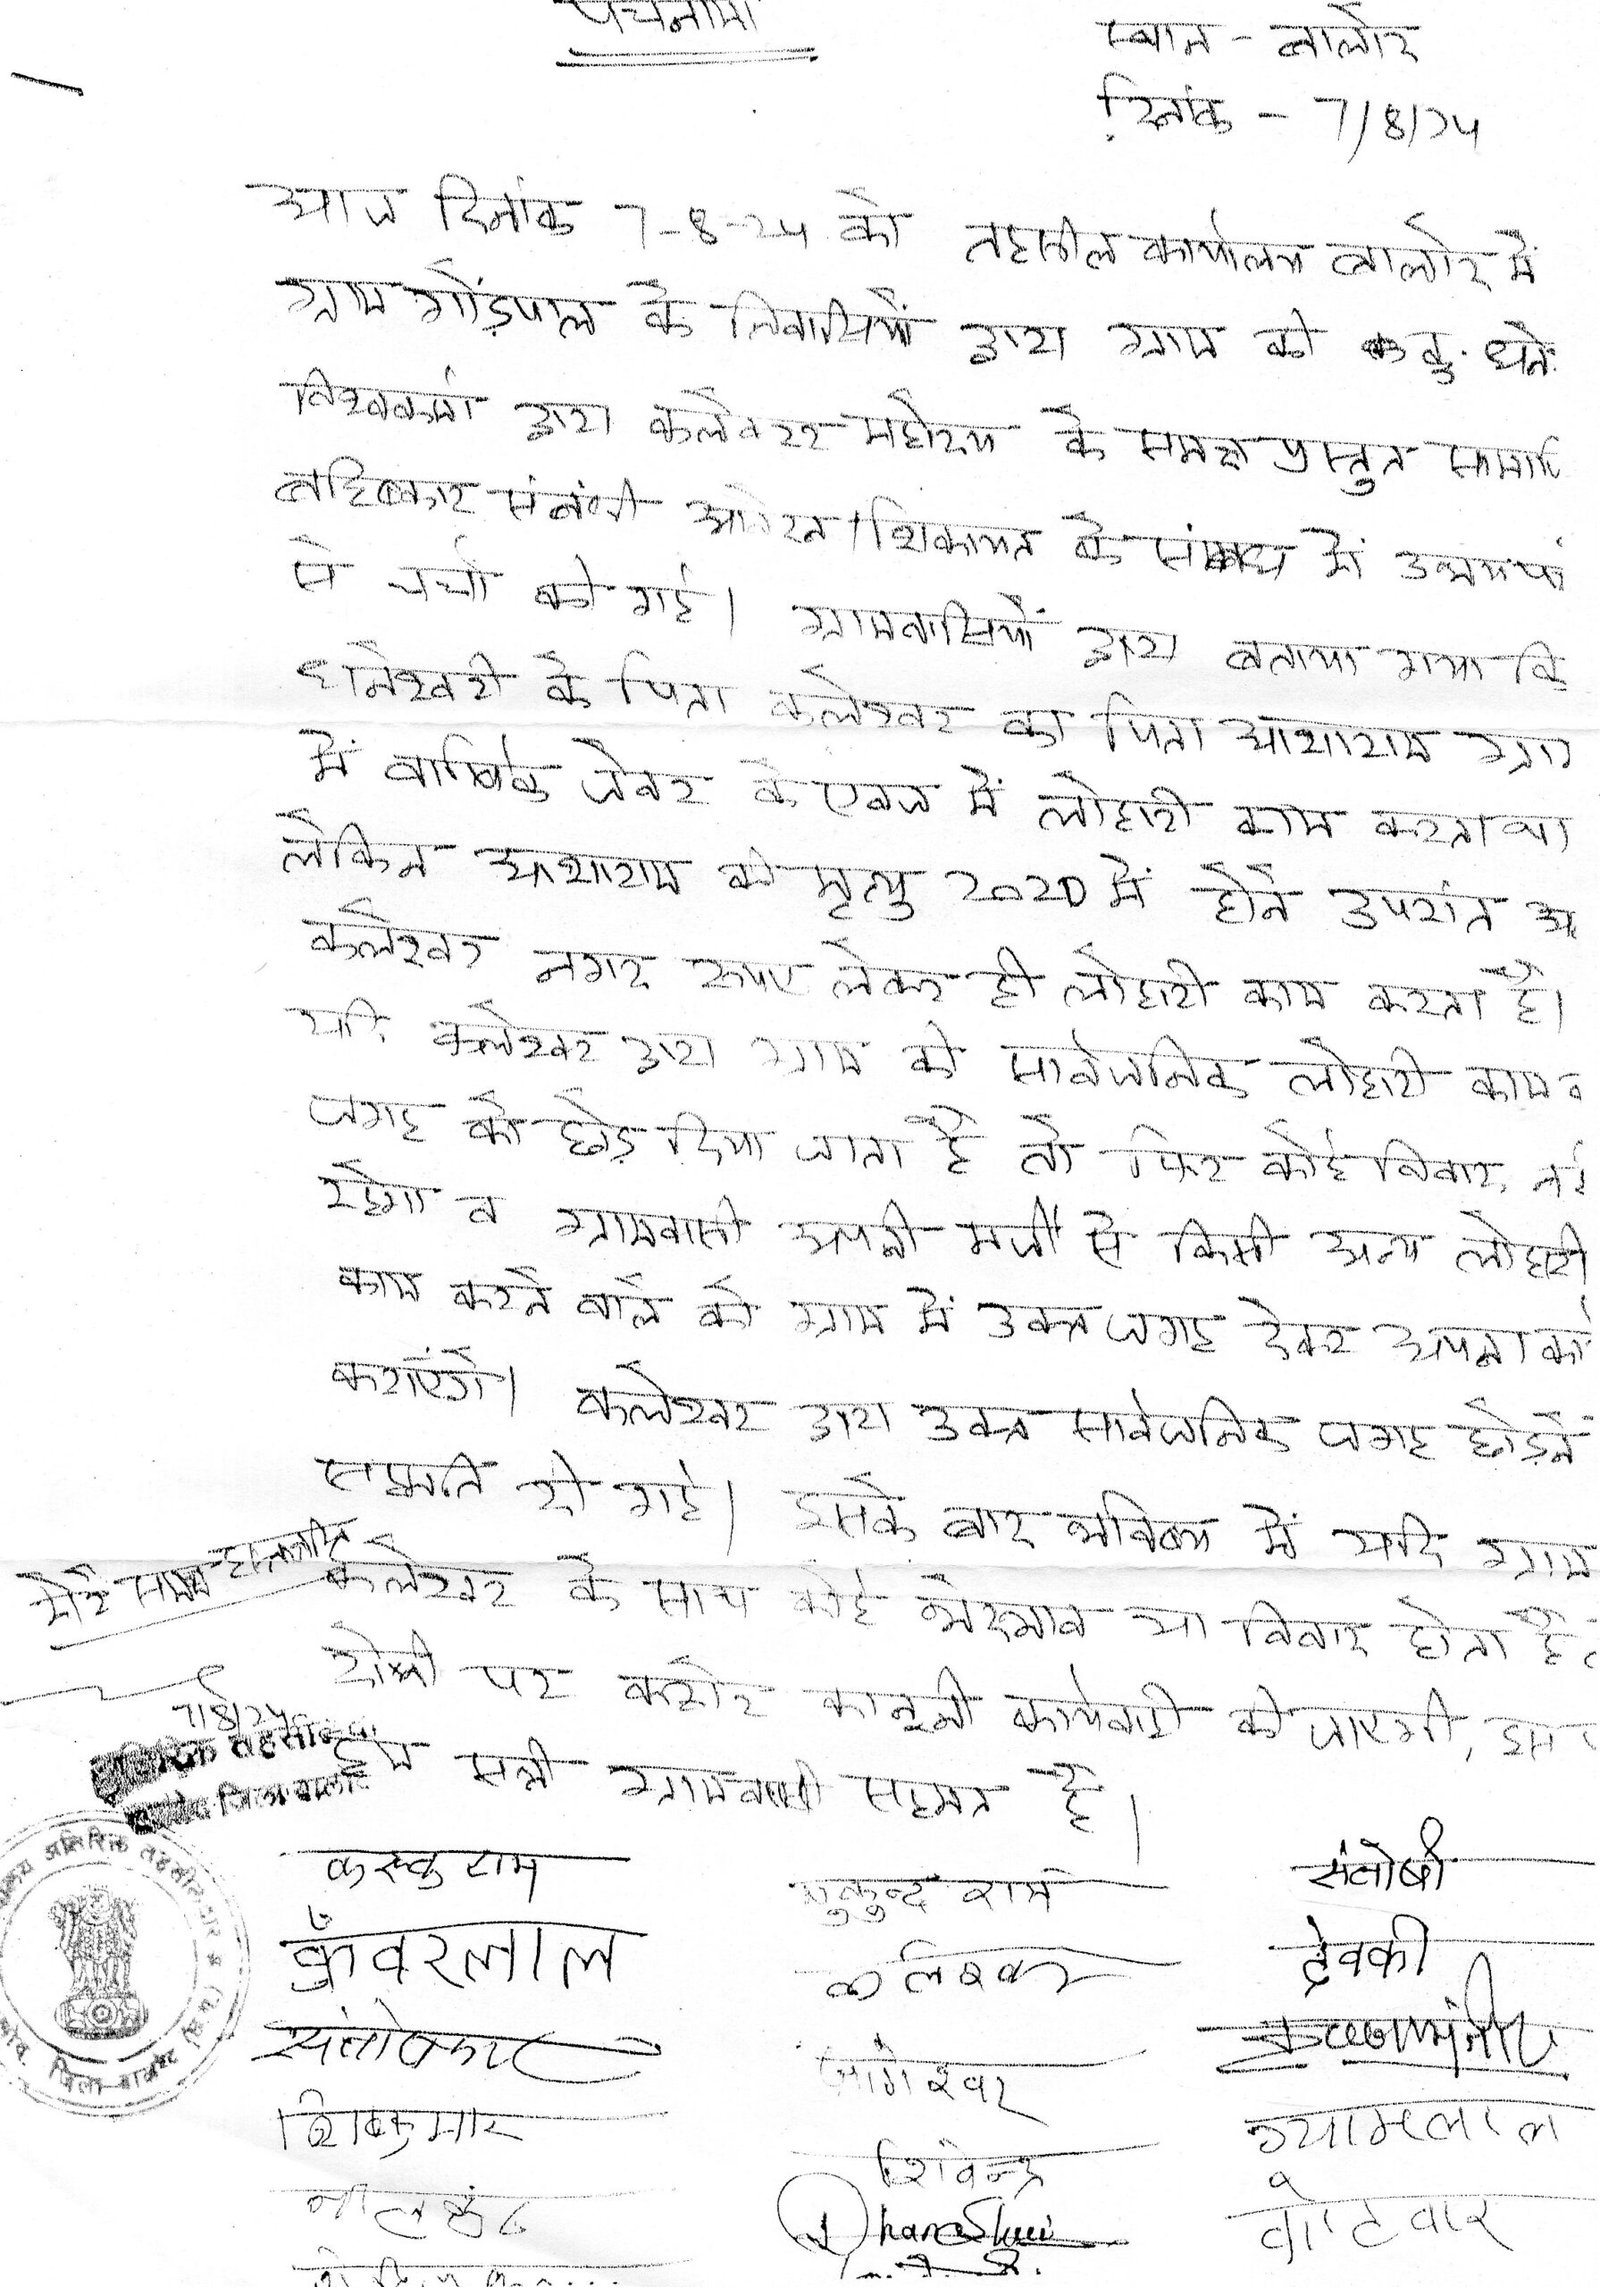 पंचनामा
स्थान - बालोद
दिनांक - 7/8/24
आज दिनांक 7-8-24 को तहसील कार्यालय बालोद में
ग्राम गोंड़पाल के निवासियों द्वारा ग्राम की कु. धने
विश्वकर्मा द्वारा कलेक्टर महोदय के समक्ष प्रस्तुत सामाजि
बहिष्कार संबंधी आवेदन/शिकायत के संबंध में उभयपक्ष
से चर्चा की गई। ग्रामवासियों द्वारा बताया गया कि
धनेश्वरी के पिता कलेश्वर का पिता आशाराम ग्राम
में वार्षिक जेवर के एवज में लोहारी काम करता था
लेकिन आशाराम की मृत्यु 2020 में होने उपरांत अ
कलेश्वर नगद रूपए लेकर ही लोहारी काम करता है।
यदि कलेश्वर द्वारा ग्राम की सार्वजनिक लोहारी काम व
जगह को छोड़ दिया जाता है तो फिर कोई विवाद नह
रहेगा व ग्रामवासी अपनी मर्जी से किसी अन्य लोहारी
काम करने वाले को ग्राम में उक्त जगह देकर अपना का
कराएंगे। कलेश्वर द्वारा उक्त सार्वजनिक जगह छोड़ने
सहमति दी गई। इसके बाद भविष्य में यदि ग्राम
मेरे समक्ष हस्ताक्षरित
कलेश्वर के साथ कोई भेदभाव या विवाद होता है त
दोषी पर कठोर कानूनी कार्यवाही की जाएगी, इस
7/8/24
हम सभी ग्रामवासी सहमत है।
अतिरिक्त तहसीलदार
जिला-बालोद
संतोषी
मुकुन्द राम
कुँवरलाल
देवकी
संतोष कुमार
जागेश्वर
शिवकुमार
श्यामलाल
शिवेन्द्र
नीलकंठ
Dhaneshwari